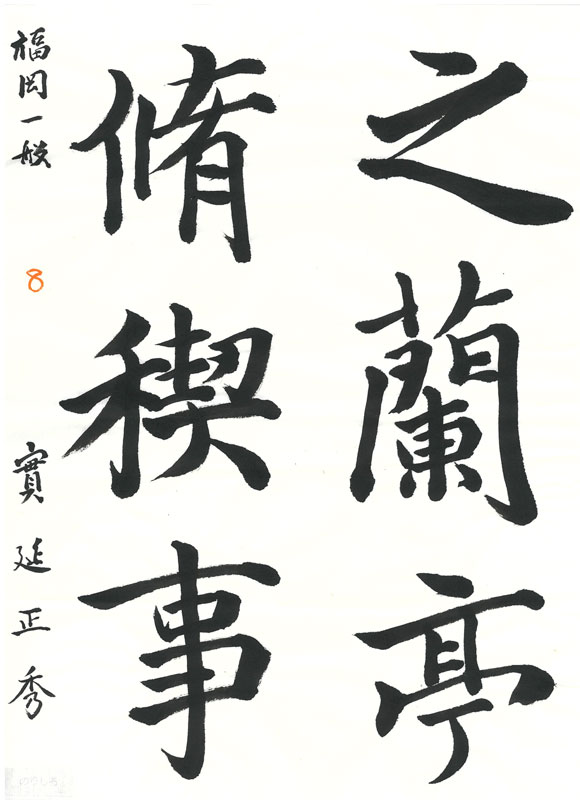 之蘭亭
脩稧事
福岡一般 8 實延正秀